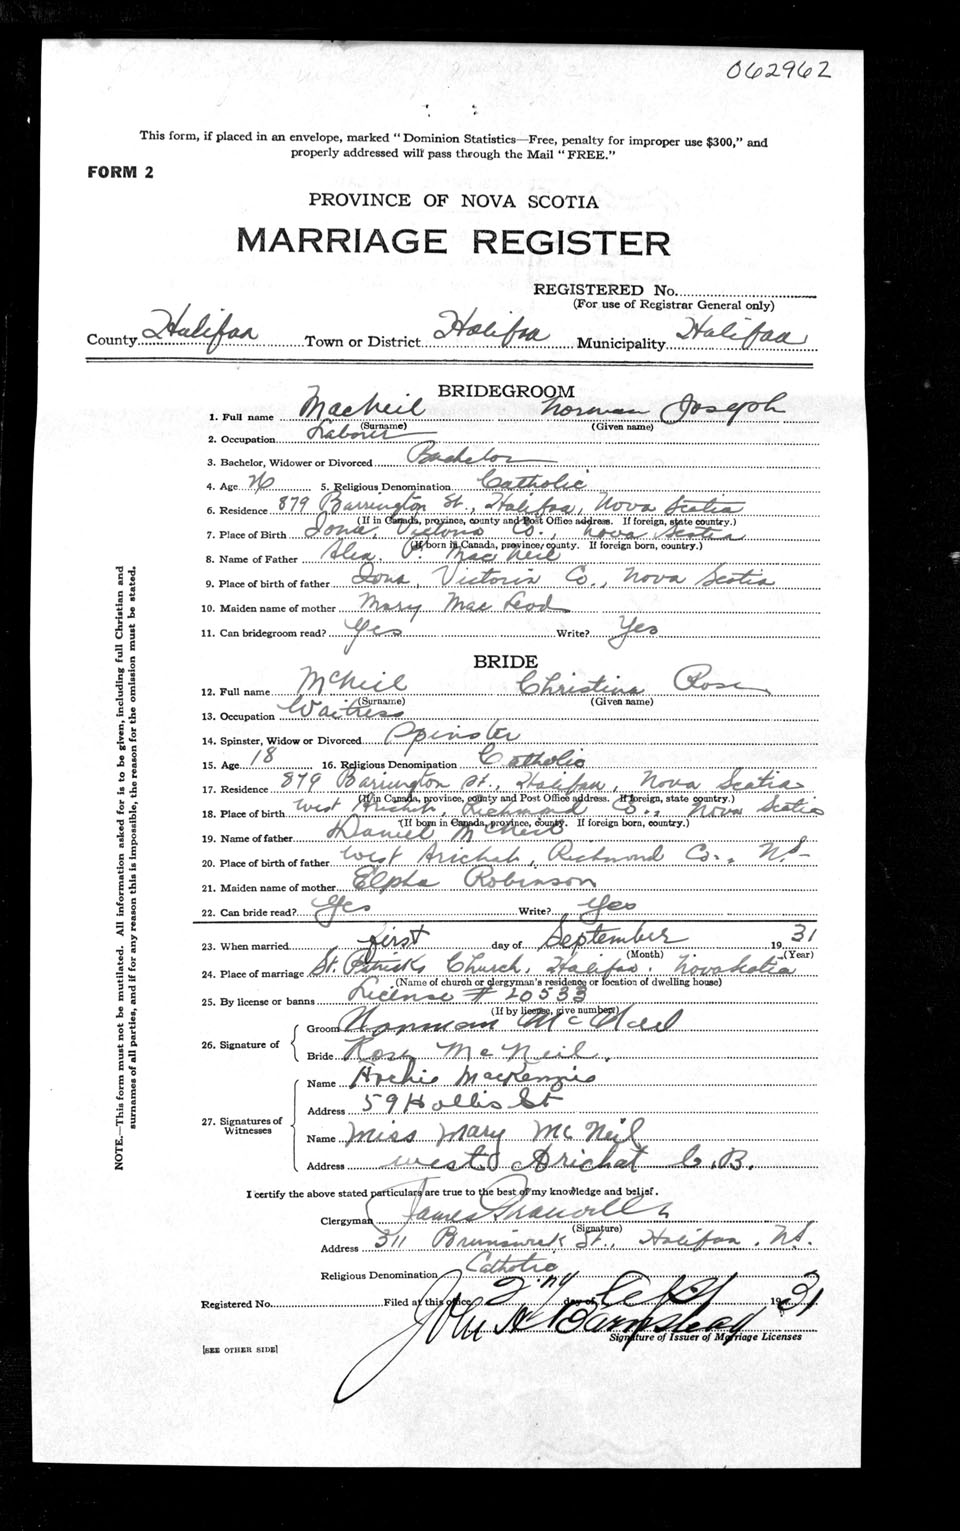 062962
This form, if placed in an envelope, marked "Dominion Statistics—Free, penalty for improper use $300," and
properly addressed will pass through the Mail "FREE."
FORM 2
PROVINCE OF NOVA SCOTIA
MARRIAGE REGISTER
REGISTERED No.
(For use of Registrar General only)
County Halifax Town or District Halifax Municipality Halifax
BRIDEGROOM
1. Full name MacNeil Norman Joseph
(Surname) (Given name)
2. Occupation Laborer
3. Bachelor, Widower or Divorced Bachelor
4. Age 26 5. Religious Denomination Catholic
6. Residence 879 Barrington St., Halifax, Nova Scotia
(If in Canada, province, county and Post Office address. If foreign, state country.)
7. Place of Birth Iona, Victoria Co., Nova Scotia
(If born in Canada, province, county. If foreign born, country.)
8. Name of Father Alex. P. MacNeil
9. Place of birth of father Iona, Victoria Co., Nova Scotia
10. Maiden name of mother Mary MacLeod
11. Can bridegroom read? Yes Write? Yes
BRIDE
12. Full name McNeil Christina Rose
(Surname) (Given name)
13. Occupation Waitress
14. Spinster, Widow or Divorced Spinster
15. Age 18 16. Religious Denomination Catholic
17. Residence 879 Barrington St., Halifax, Nova Scotia
(If in Canada, province, county and Post Office address. If foreign, state country.)
18. Place of birth West Arichat, Richmond Co., Nova Scotia
(If born in Canada, province, county. If foreign born, country.)
19. Name of father Daniel McNeil
20. Place of birth of father West Arichat, Richmond Co., N.S.
21. Maiden name of mother Elpha Robinson
22. Can bride read? Yes Write? Yes
23. When married first day of September 1931
(Month) (Year)
24. Place of marriage St. Patrick's Church, Halifax, Nova Scotia
(Name of church or clergyman's residence or location of dwelling house)
25. By license or banns License # 20533
(If by license, give number)
26. Signature of
Groom Norman McNeil
Bride Rose McNeil.
27. Signatures of Witnesses
Name Archie MacKenzie
Address 59 Hollis St
Name Miss Mary McNeil
Address West Arichat C.B.
I certify the above stated particulars are true to the best of my knowledge and belief.
Clergyman James
(Signature)
Address 311 Brunswick St., Halifax, N.S.
Religious Denomination Catholic
Registered No. Filed at this office 2nd day of Sept 1931
John H Barnstead
Signature of Issuer of Marriage Licenses
[SEE OTHER SIDE]
NOTE.—This form must not be mutilated. All information asked for is to be given, including full Christian and
surnames of all parties, and if for any reason this is impossible, the reason for the omission must be stated.